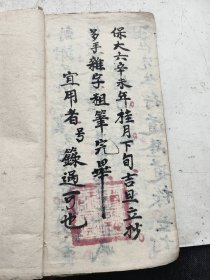 保大六辛未年桂月下旬吉旦立抄
多手雜字租筆完畢
宜用者号錄過可也